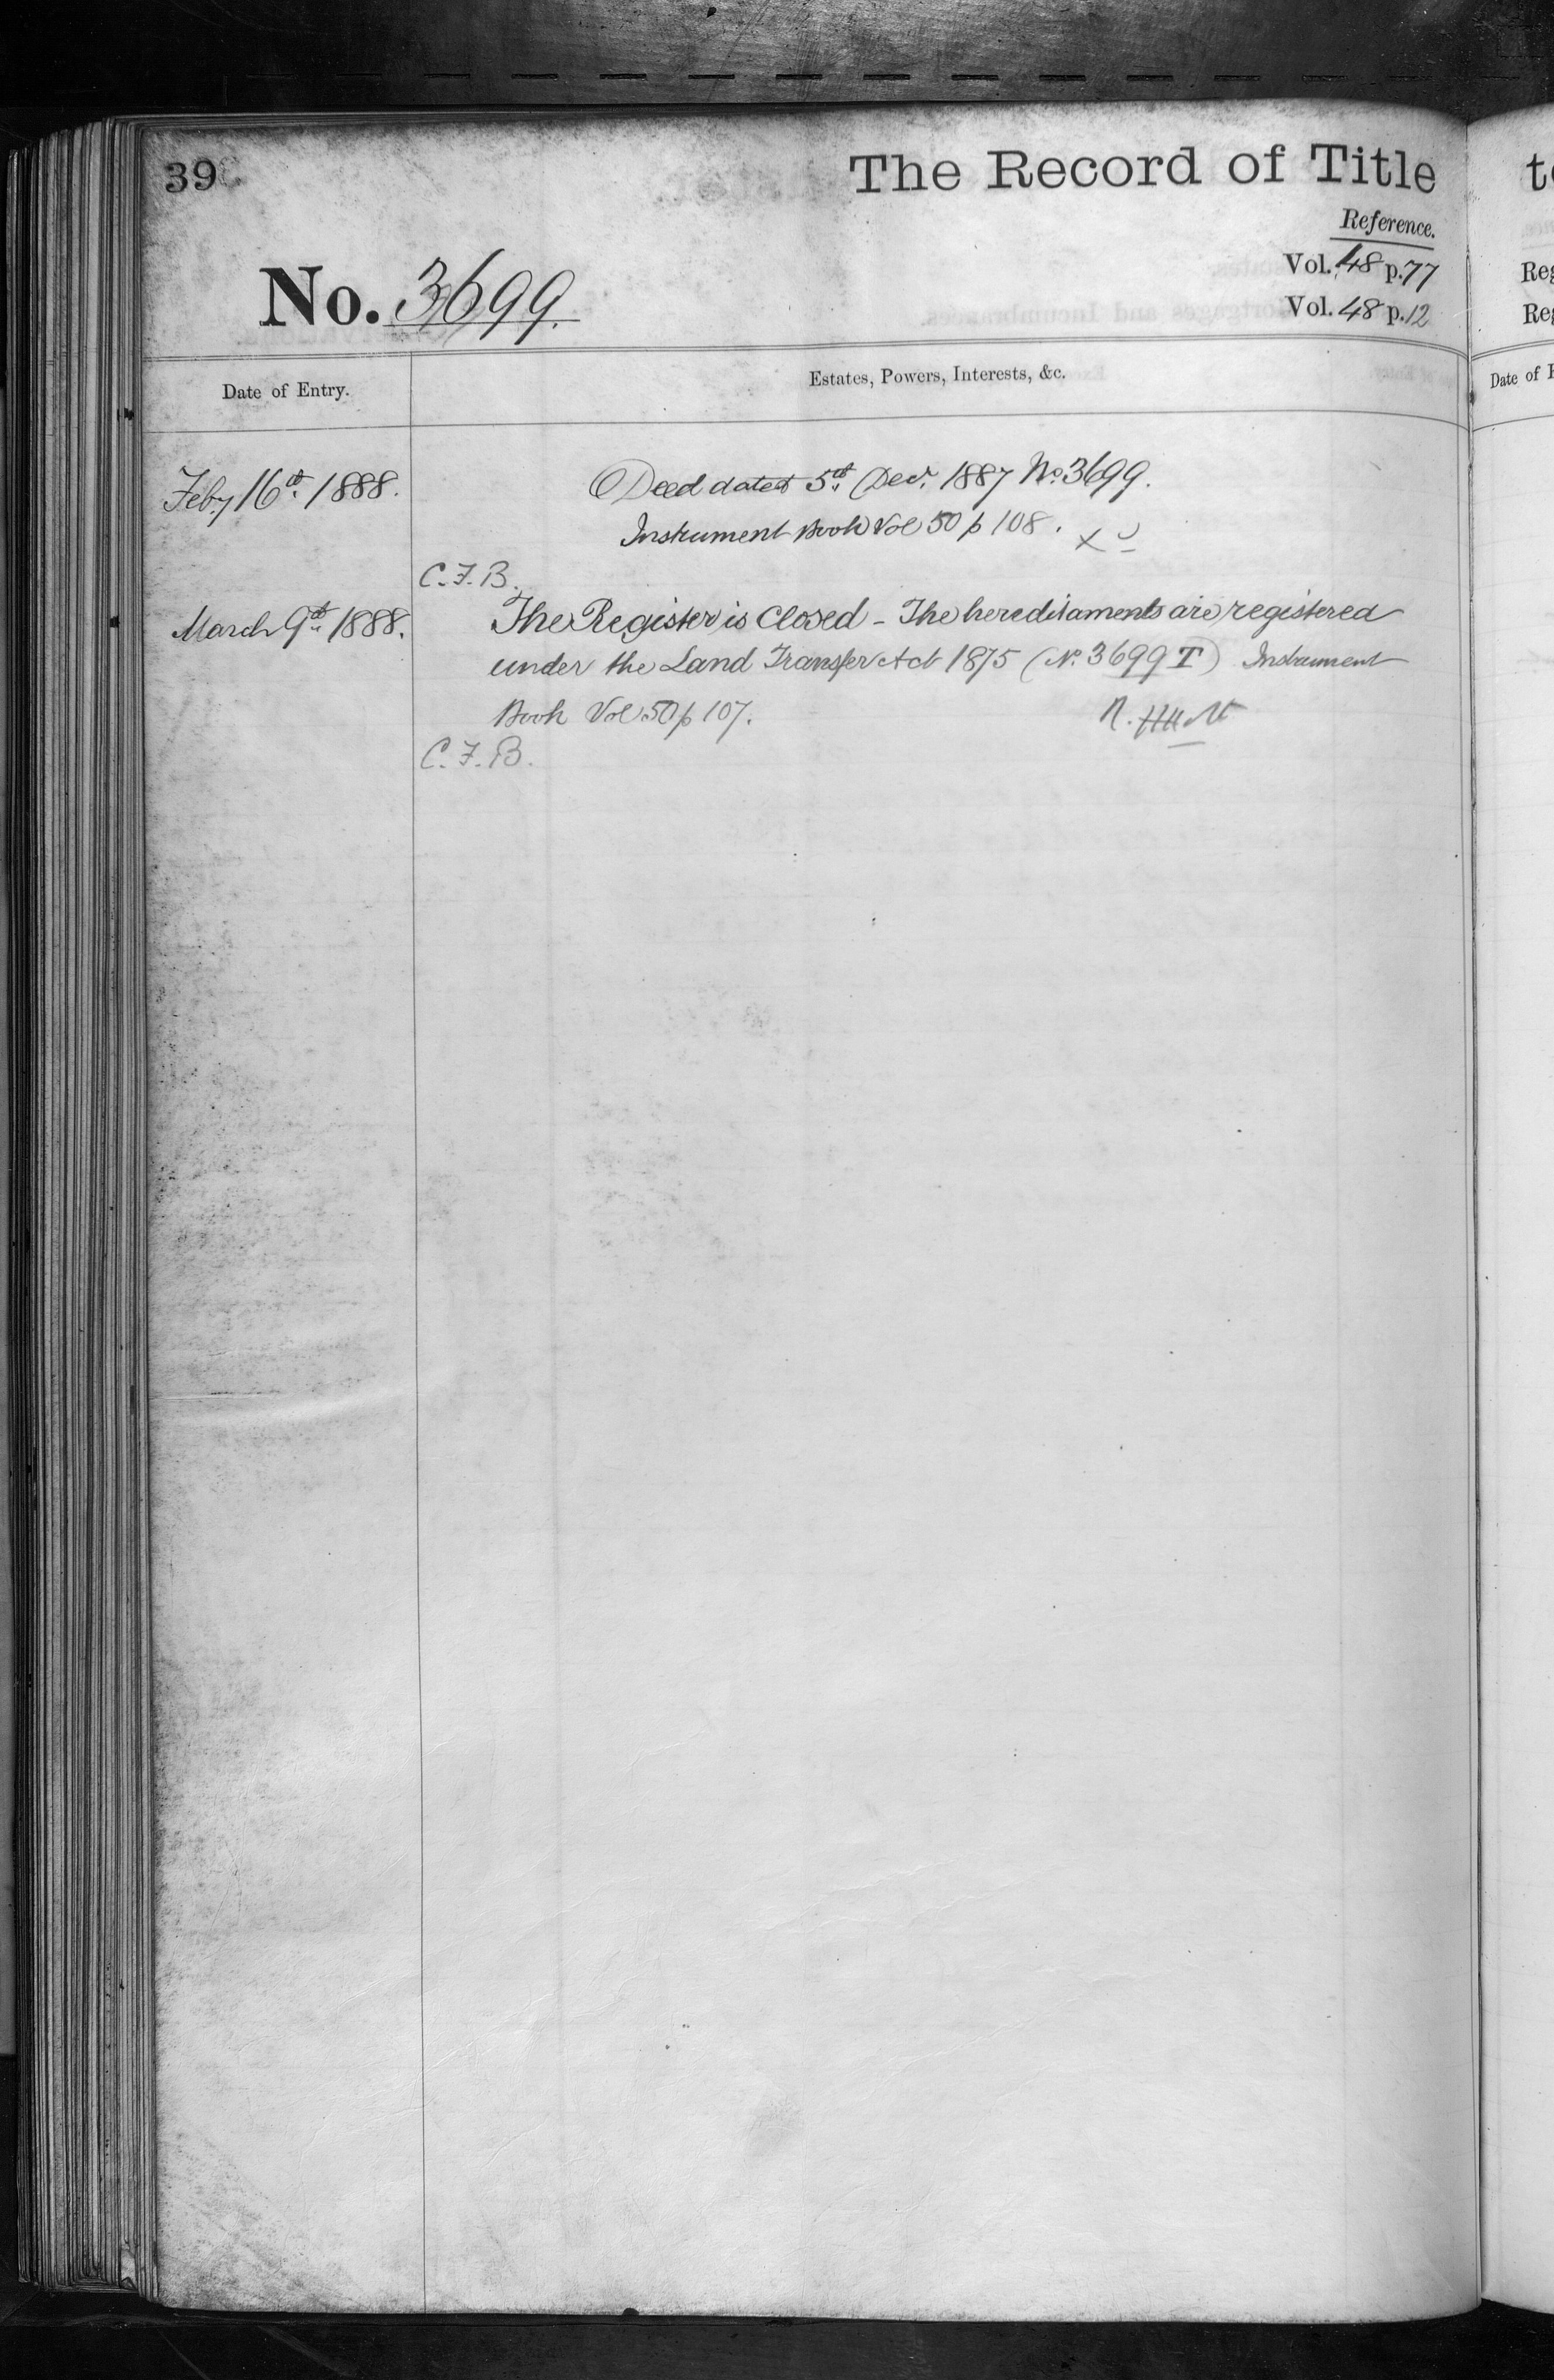 39
The Record of Title
Reference.
No. 3699.
Vol. 48 p. 77
Vol. 48 p. 12
Date of Entry.
Estates, Powers, Interests, &c.
Feby 16th 1888.
Deed dated 5th Decr. 1887 No. 3699.
Instrument Book Vol 50 p 108.
C. F. B.
March 9th 1888.
The Register is Closed - The hereditaments are registered
under the Land Transfer Act 1875 (No. 3699 T) Instrument
Book Vol 50 p 107.
C. F. B.
Reg
Reg
Date of